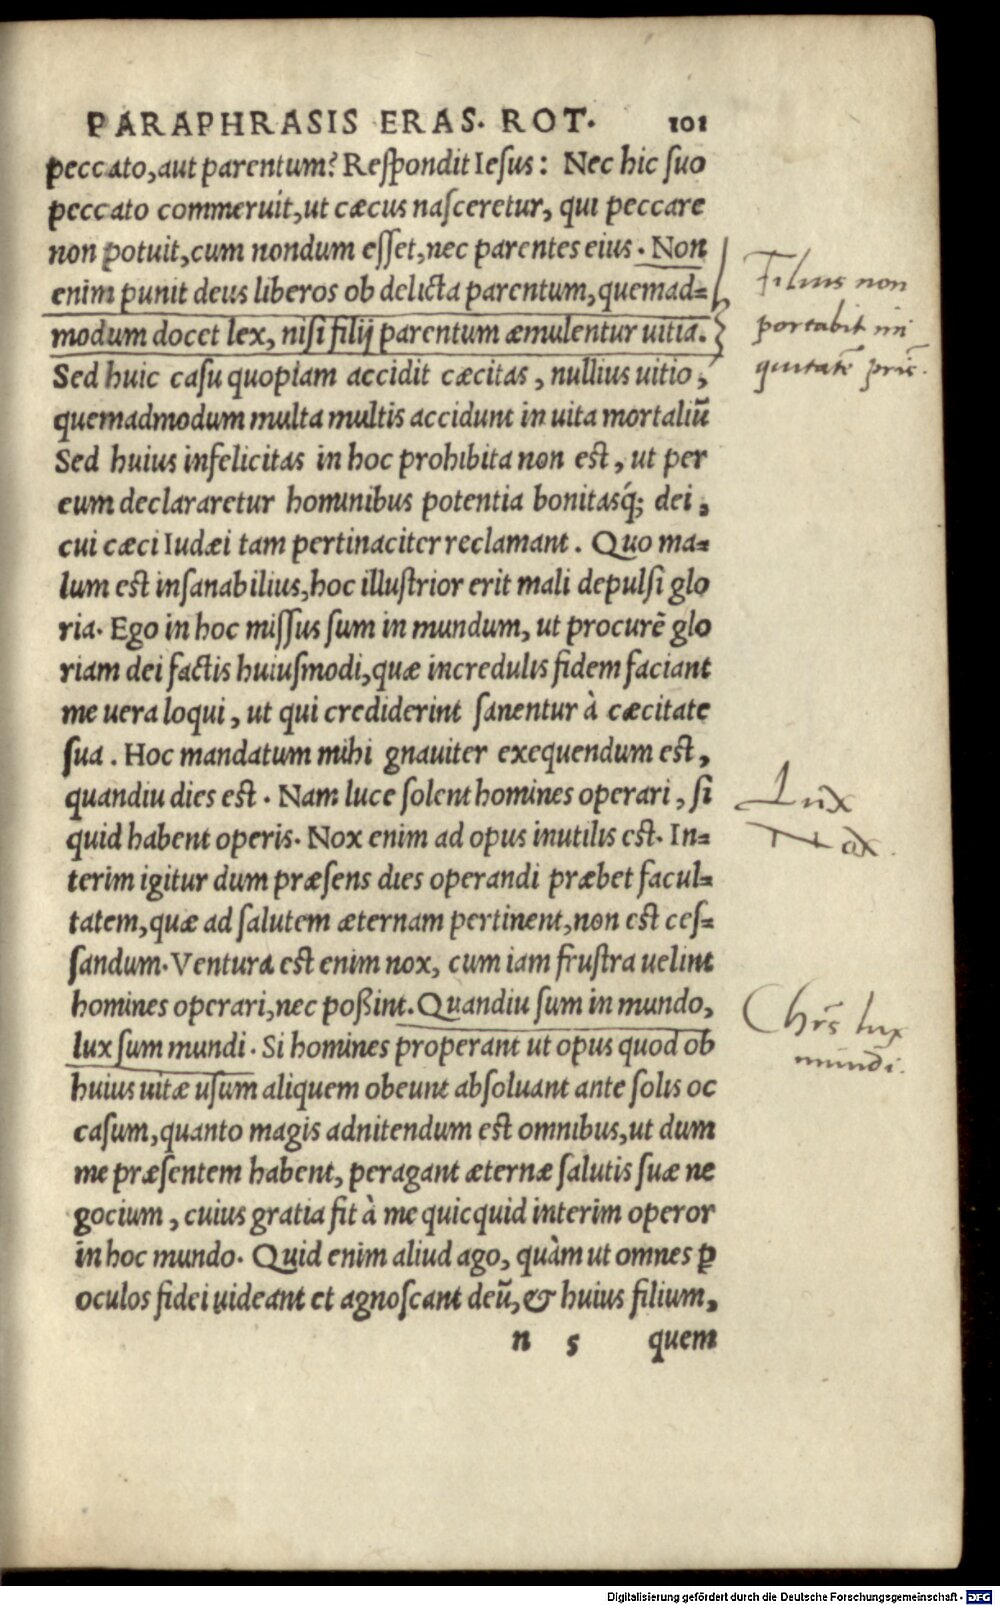 PARAPHRASIS ERAS. ROT. 101
peccato, aut parentum? Respondit Iesus: Nec hic suo
peccato commeruit, ut cæcus nasceretur, qui peccare
non potuit, cum nondum esset, nec parentes eius. Non
enim punit deus liberos ob delicta parentum, quemad=
modum docet lex, nisi filij parentum æmulentur uitia.
Filius non
portabit ini
quitatē pris̄.
Sed huic casu quopiam accidit cæcitas, nullius uitio,
quemadmodum multa multis accidunt in uita mortaliū
Sed huius infelicitas in hoc prohibita non est, ut per
eum declararetur hominibus potentia bonitasq́; dei,
cui cæci Iudæi tam pertinaciter reclamant. Quo ma=
lum est insanabilius, hoc illustrior erit mali depulsi glo
ria. Ego in hoc missus sum in mundum, ut procurē glo
riam dei factis huiusmodi, quæ incredulis fidem faciant
me uera loqui, ut qui crediderint sanentur à cæcitate
sua. Hoc mandatum mihi gnauiter exequendum est,
quandiu dies est. Nam luce solent homines operari, si
quid habent operis. Nox enim ad opus inutilis est. In=
Lux
Nox.
terim igitur dum præsens dies operandi præbet facul=
tatem, quæ ad salutem æternam pertinent, non est ces=
sandum. Ventura est enim nox, cum iam frustra uelint
homines operari, nec poßint. Quandiu sum in mundo,
lux sum mundi. Si homines properant ut opus quod ob
Chrs̄ lux
mundi.
huius uitæ usum aliquem obeunt absoluant ante solis oc
casum, quanto magis adnitendum est omnibus, ut dum
me præsentem habent, peragant æternæ salutis suæ ne
gocium, cuius gratia fit à me quicquid interim operor
in hoc mundo. Quid enim aliud ago, quàm ut omnes ꝑ
oculos fidei uideant et agnoscant deū, & huius filium,
n 5 quem
Digitalisierung gefördert durch die Deutsche Forschungsgemeinschaft - DFG